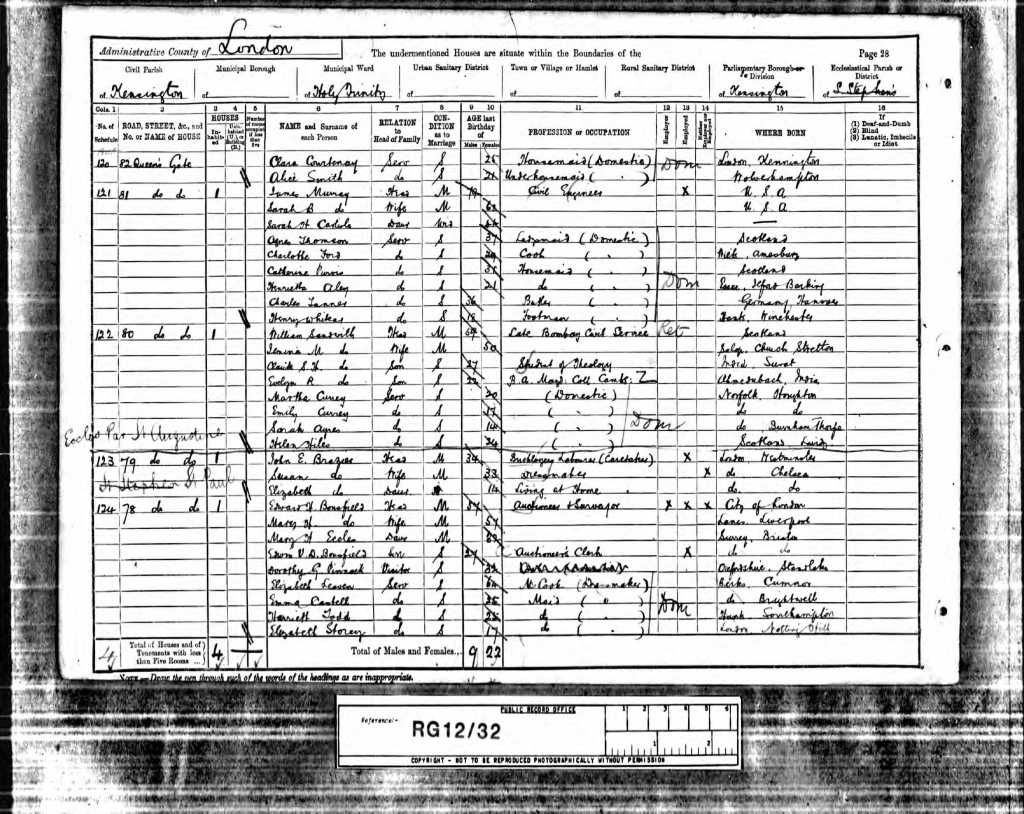 Administrative County of London The undermentioned Houses are situate within the Boundaries of the Page 28
Civil Parish Municipal Borough Municipal Ward Urban Sanitary District Town or Village or Hamlet Rural Sanitary District Parliamentary Borough or Division Ecclesiastical Parish or District
of Kensington of of Holy Trinity of of of of Kensington of S. Stephens
Cols. 1 2 3 4 5 6 7 8 9 10 11 12 13 14 15 16
No. of Schedule ROAD, STREET, &c., and No. or NAME of HOUSE HOUSES NAME and Surname of each Person RELATION to Head of Family CONDITION as to Marriage AGE last Birthday of Males Females PROFESSION or OCCUPATION Employer Employed WHERE BORN If (1) Deaf-and-Dumb (2) Blind (3) Lunatic, Imbecile or Idiot
120 82 Queen's Gate Clara Courtenay Serv S 25 Housemaid (Domestic) Dom London, Kennington
Alice Smith do S 21 Underhousemaid ( " ) Wolverhampton
121 81 do do 1 James Murray Head M Civil Engineer X U. S. A
Sarah B do Wife M 62 U. S. A
Sarah H Carlisle Daur —
Agnes Thomson Serv S 37 Ladysmaid (Domestic) Scotland
Charlotte Ford do S Cook ( " ) Amesbury
Catherine Purvis do S Housemaid ( " ) Scotland
Henrietta Aley do S 21 do ( " ) Dom Essex, Ilford Barking
Charles Tanner do S 36 ( " ) Germany Hanover
Henry do S 18 Footman ( " ) Hants, Winchester
122 80 do do 1 William Head M 69 Late Bombay Civil Service Ret Scotland
M do Wife M 50 Salop, Church Stretton
S. H. do Son S 27 Student of Theology India, Surat
Evelyn R do Son S 22 B.A. Magd. Coll Camb. India
Martha Currey Serv S 20 (Domestic) Norfolk, Houghton
Emily Currey do S 17 ( " ) do do
Sarah Agnes do S 14 ( " ) Dom do Burnham Thorpe
Eccles Par St Augustine
Helen Hiles do S 24 ( " ) Scotland
123 79 do do 1 John E. Brazier Head M 34 Bricklayers Labourer (Caretaker) X London, Westminster
Susan do Wife M 33 Dressmaker X do Chelsea
St Stephen St Paul
Elizabeth do Daur 14 Living at Home do. do
124 78 do do 1 Edward H. Bousfield Head M 57 Auctioneer & Surveyor X X X City of London
Mary H do Wife M 57 Lancs. Liverpool
Mary H Eccles Daur M Surrey, Brixton
Edwin V. D. Bousfield Son S 27 Auctioneer's Clerk X do do
Dorothy G. Pinnock Visitor S 32 Oxfordshire, Standlake
Elizabeth Leaven Serv S 64 Cook Berks, Cumnor
Emma Castell do S 35 Maid ( " ) Dom do Brightwell
Harriett Todd do S 25 do ( " ) Hants Southampton
Elizabeth Storey do S 17 do ( " ) London Notting Hill
4 Total of Houses and of Tenements with less than Five Rooms 4 — Total of Males and Females 9 22
NOTE.—Draw the pen through such of the words of the headings as are inappropriate.
PUBLIC RECORD OFFICE
Reference:-
RG12/32
1 2 3 4 5 6
1 2
COPYRIGHT - NOT TO BE REPRODUCED PHOTOGRAPHICALLY WITHOUT PERMISSION